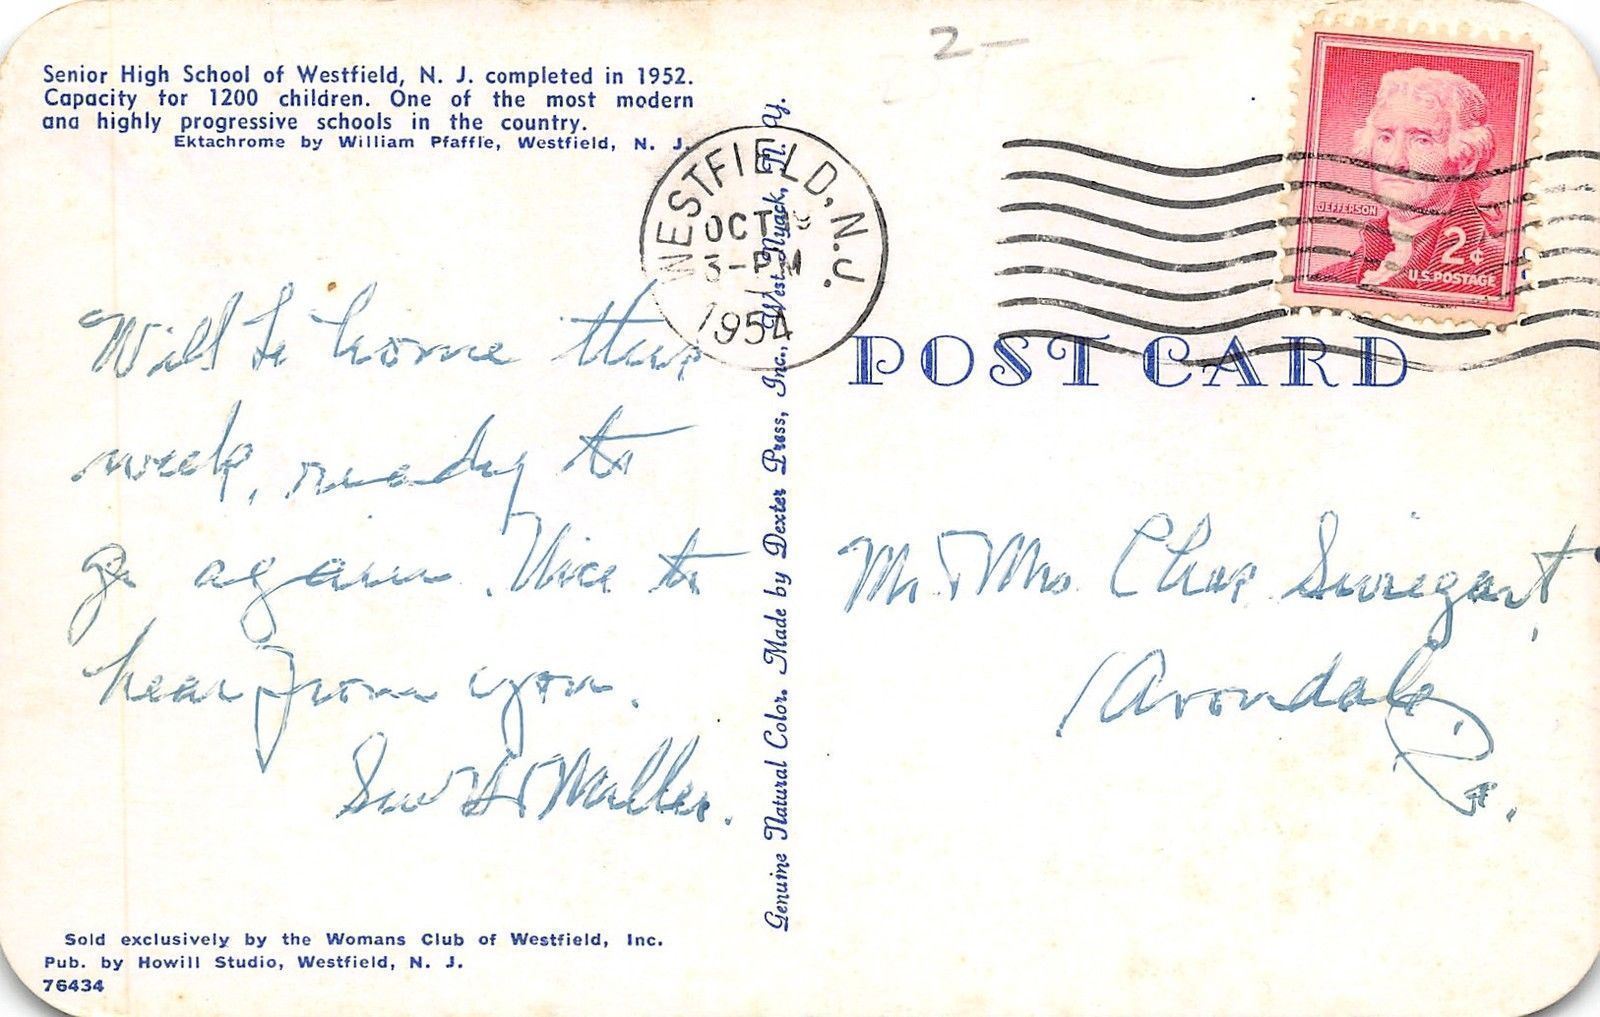 Senior High School of Westfield, N. J. completed in 1952.
Capacity for 1200 children. One of the most modern
and highly progressive schools in the country.
Ektachrome by William Pfaffle, Westfield, N. J.
2-
WESTFIELD, N.J.
OCT
3-PM
1954
JEFFERSON
2¢
U.S. POSTAGE
POST CARD
Will be home this
week, ready to
go again. Nice to
hear from you.
Miller.
Genuine Natural Color. Made by Dexter Press, Inc., West Nyack, N. Y.
Mr & Mrs Chas Swiegart,
Avondale,
Pa.
Sold exclusively by the Womans Club of Westfield, Inc.
Pub. by Howill Studio, Westfield, N. J.
76434